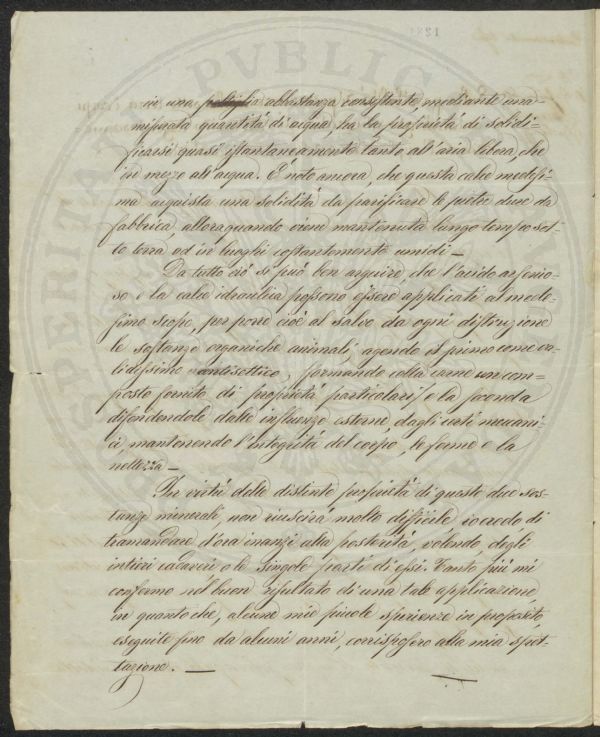 in una poltiglia abbastanza consistente mediante una
misurata quantità di acqua ha la proprietà di solidi=
ficarsi quasi istantaneamente tanto all'aria libera, che
in mezzo all'acqua. È noto ancora, che questa calce medesi=
ma acquista una solidità da parificare le pietre dure da
fabbrica, alloraquando viene mantenuta lungo tempo sot=
to terra od in luoghi costantemente umidi —
Da tutto ciò si può ben arguire che l'acido arsenio=
so e la calce idraulica possono essere applicati al mede=
simo scopo, per porre cioè al salvo da ogni distruzione
le sostanze organiche animali, agendo il primo come va=
lidissimo antisettico, formando colla carne un com=
posto fornito di proprietà particolari, e la seconda
difendendole dalle influenze esterne, dagli urti meccani=
ci, mantenendo l'integrità del corpo, le forme e la
nettezza —
In virtù delle distinte proprietà di queste due sos=
tanze minerali, non riuscirà molto difficile io credo di
tramandare d'ora innanzi alla posterità, volendo, degli
intieri cadaveri o le singole parti di essi. Tanto più mi
confermo nel buon risultato di una tale applicazione,
in quanto che, alcune mie piccole sperienze in proposito,
eseguite fino da alcuni anni, corrisposero alla mia spet=
tazione. —